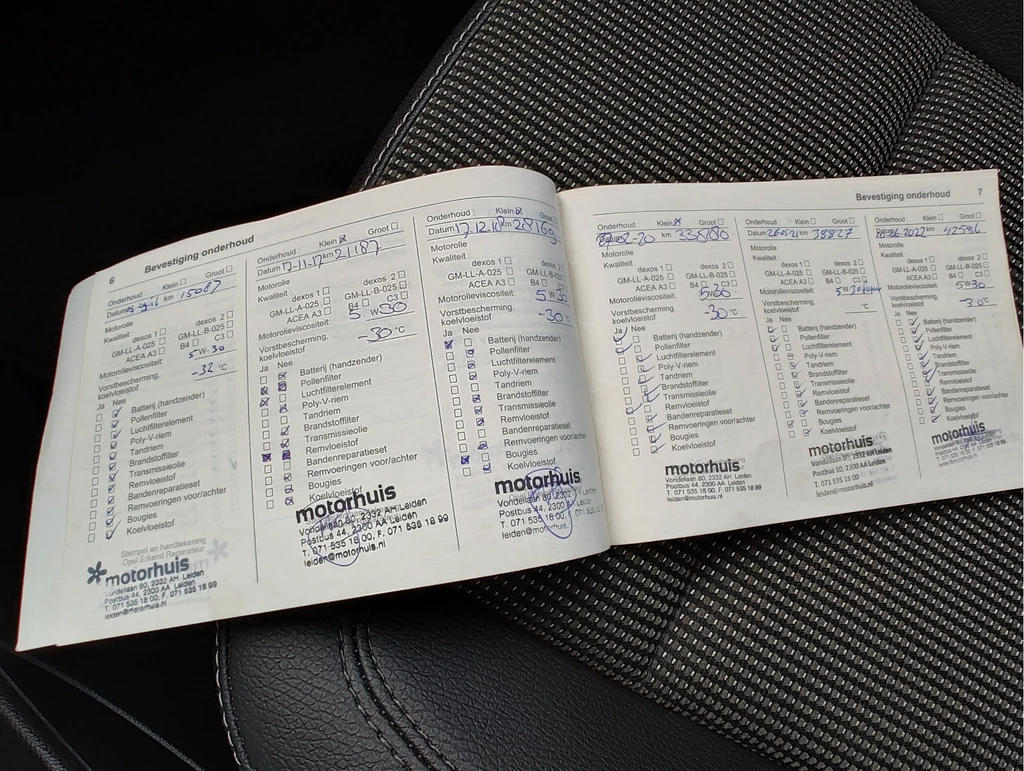 6
Bevestiging onderhoud
Onderhoud Klein Groot
Datum km 15087
Motorolie
Kwaliteit dexos 1 dexos 2
GM-LL-A-025 GM-LL-B-025
ACEA A3 B4 C3
Motorolieviscositeit: 5-W-30
Vorstbescherming, koelvloeistof -32 °C
Ja Nee
Batterij (handzender)
Pollenfilter
Luchtfilterelement
Poly-V-riem
Tandriem
Brandstoffilter
Transmissieolie
Remvloeistof
Bandenreparatieset
Remvoeringen voor/achter
Bougies
Koelvloeistof
Stempel en handtekening
Opel Erkend Reparateur
motorhuis
Vondellaan 80, 2332 AH Leiden
Postbus 44, 2300 AA Leiden
T. 071 535 18 00, F. 071 535 18 99
leiden@motorhuis.nl
Onderhoud Klein Groot
Datum 17-11-17 km 21187
Motorolie
Kwaliteit dexos 1 dexos 2
GM-LL-A-025 GM-LL-B-025
ACEA A3 B4 C3
Motorolieviscositeit: 5 W30
Vorstbescherming, koelvloeistof -30 °C
Ja Nee
Batterij (handzender)
Pollenfilter
Luchtfilterelement
Poly-V-riem
Tandriem
Brandstoffilter
Transmissieolie
Remvloeistof
Bandenreparatieset
Remvoeringen voor/achter
Bougies
Koelvloeistof
motorhuis
Vondellaan 80, 2332 AH Leiden
Postbus 44, 2300 AA Leiden
T. 071 535 18 00, F. 071 535 18 99
leiden@motorhuis.nl
Onderhoud Klein Groot
Datum 17.12.18 km 28169
Motorolie
Kwaliteit dexos 1 dexos 2
GM-LL-A-025 GM-LL-B-025
ACEA A3 B4 C3
Motorolieviscositeit: 5 W30
Vorstbescherming, koelvloeistof -30 °C
Ja Nee
Batterij (handzender)
Pollenfilter
Luchtfilterelement
Poly-V-riem
Tandriem
Brandstoffilter
Transmissieolie
Remvloeistof
Bandenreparatieset
Remvoeringen voor/achter
Bougies
Koelvloeistof
motorhuis
Vondellaan 80, 2332
Postbus 44, 2300 AA
T. 071 535 18 00,
leiden@motorhuis.
Bevestiging onderhoud
7
Onderhoud Klein Groot
km
Motorolie
Kwaliteit
dexos 1 dexos 2
GM-LL-A-025 GM-LL-B-025
ACEA A3 B4 C3
Motorolieviscositeit: 5W30
Vorstbescherming, koelvloeistof -30 °C
Ja Nee
Batterij (handzender)
Pollenfilter
Luchtfilterelement
Poly-V-riem
Tandriem
Brandstoffilter
Transmissieolie
Remvloeistof
Bandenreparatieset
Remvoeringen voor/achter
Bougies
Koelvloeistof
motorhuis
Vondellaan 80, 2332 AH Leiden
Postbus 44, 2300 AA Leiden
T. 071 535 18 00, F. 071 535 18 99
leiden@motorhuis.nl
Onderhoud Klein Groot
Datum 26-05-21 km 38827
Motorolie
Kwaliteit
dexos 1 dexos 2
GM-LL-A-025 GM-LL-B-025
ACEA A3 B4 C3
Motorolieviscositeit: 5W-30
Vorstbescherming, koelvloeistof °C
Ja Nee
Batterij (handzender)
Pollenfilter
Luchtfilterelement
Poly-V-riem
Tandriem
Brandstoffilter
Transmissieolie
Remvloeistof
Bandenreparatieset
Remvoeringen voor/achter
Bougies
Koelvloeistof
motorhuis
Vondellaan 80, 2332 AH Leiden
Postbus 44, 2300 AA Leiden
T. 071 535 18 00,
leiden@motorhuis.nl
Onderhoud Klein Groot
2022 km 42596
Motorolie
Kwaliteit
dexos 1 dexos 2
GM-LL-A-025 GM-LL-B-025
ACEA A3 B4 C3
Motorolieviscositeit: 5W30
Vorstbescherming, koelvloeistof -30 °C
Ja Nee
Batterij (handzender)
Pollenfilter
Luchtfilterelement
Poly-V-riem
Tandriem
Brandstoffilter
Transmissieolie
Remvloeistof
Bandenreparatieset
Remvoeringen voor/achter
Bougies
Koelvloeistof
motorhuis